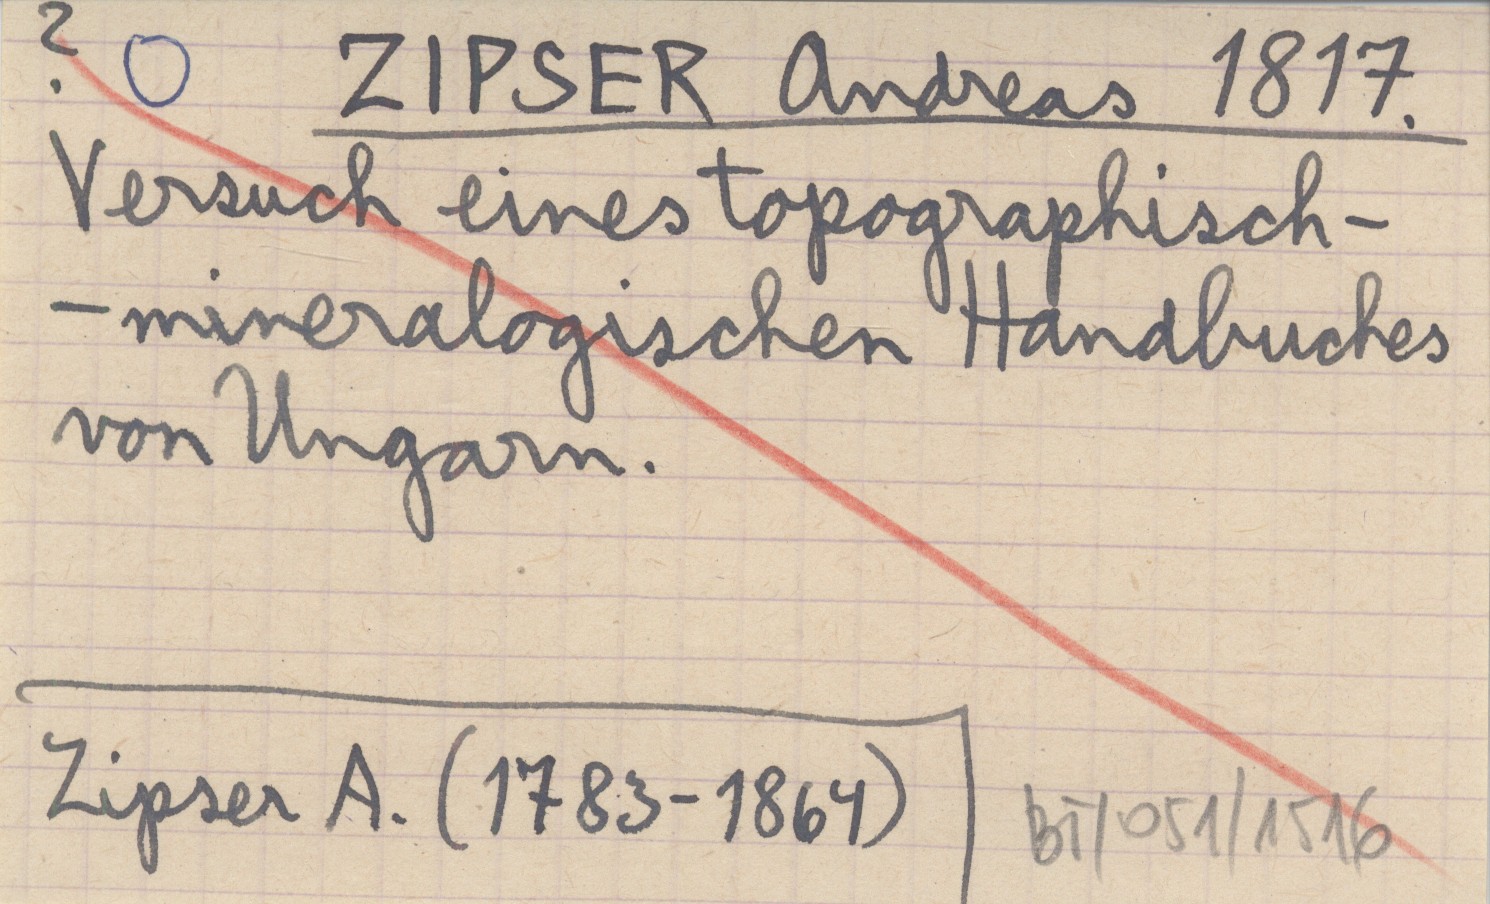 ? O ZIPSER Andreas 1817.
Versuch eines topographisch-
-mineralogischen Handbuches
von Ungarn.
Zipser A. (1783-1864)
BT/051/1516